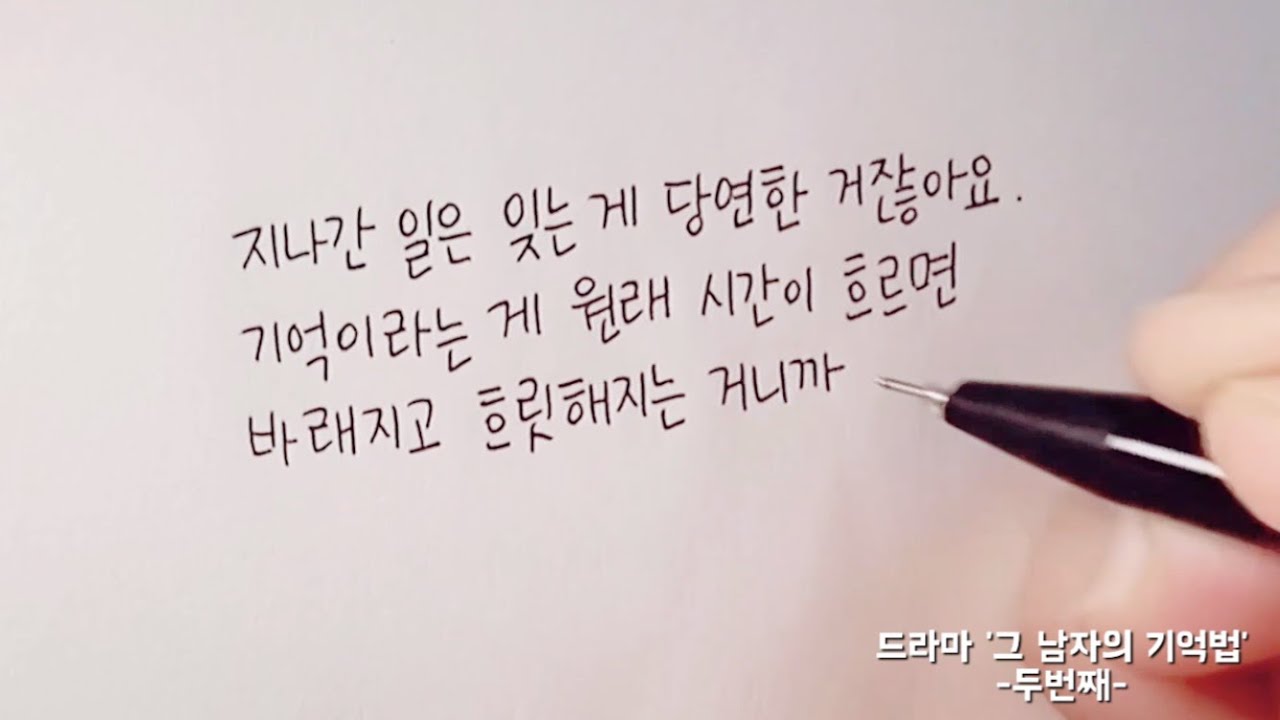 지나간 일은 잊는 게 당연한 거잖아요.
기억이라는 게 원래 시간이 흐르면
바래지고 흐릿해지는 거니까
드라마 '그 남자의 기억법'
-두번째-